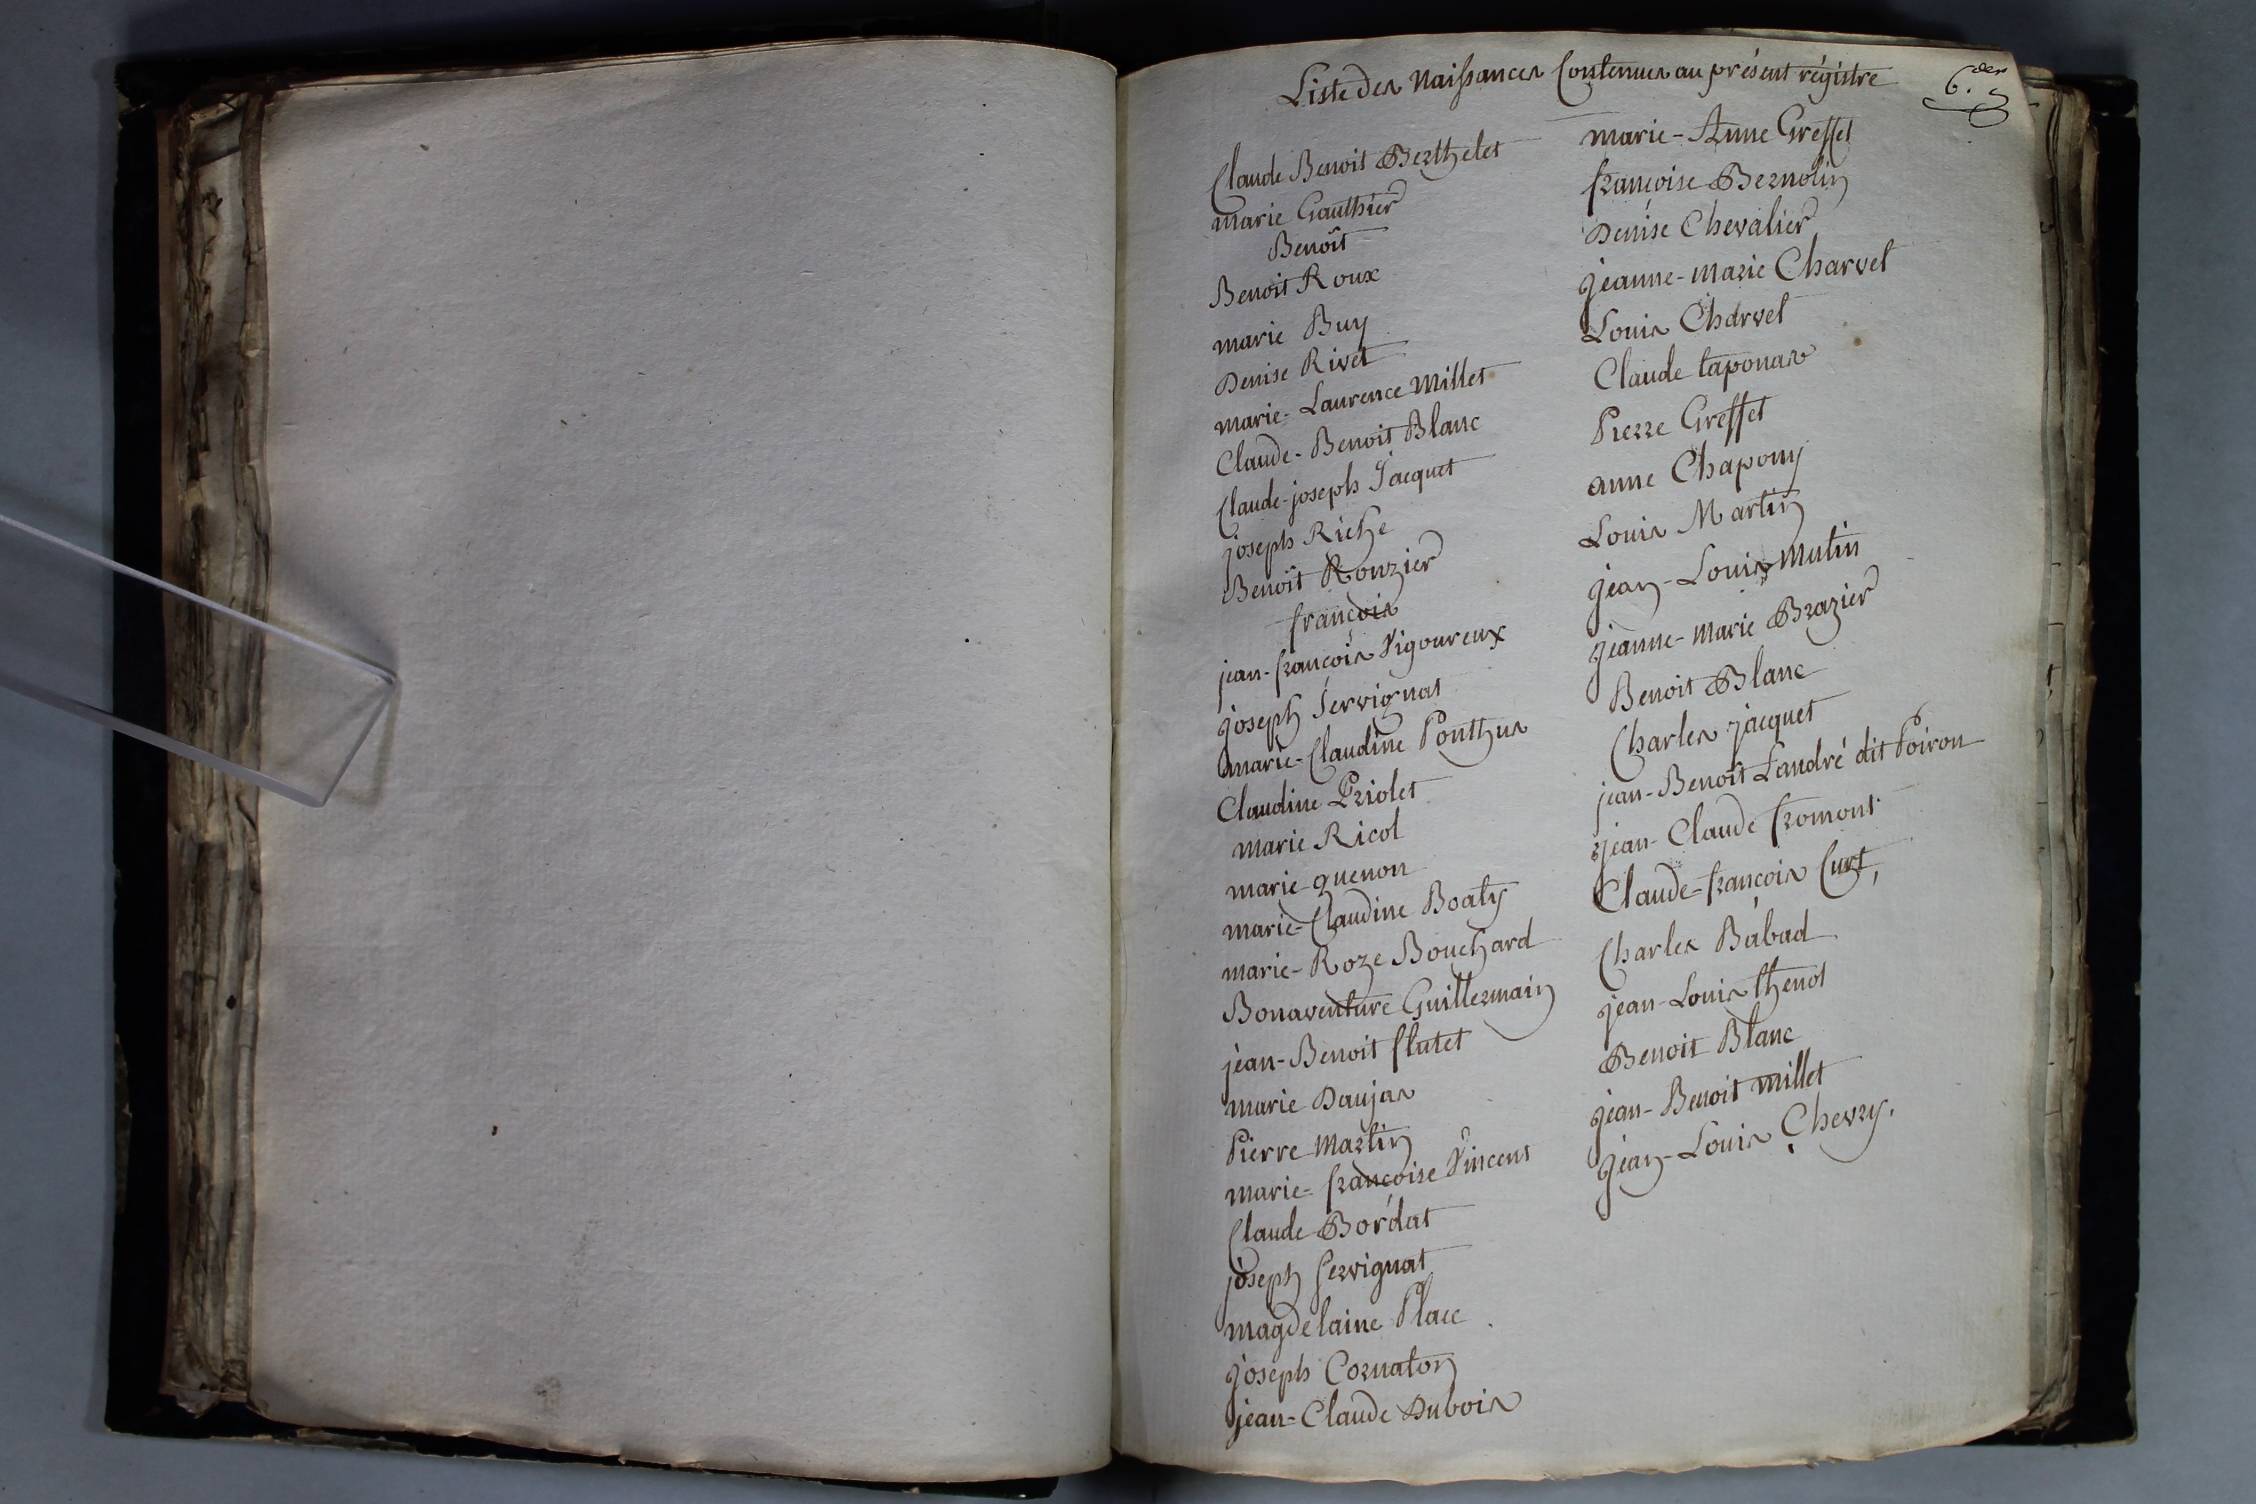 Liste des Naissances Contenues au présent régistre
6.der
Claude Benoit Berthelet
marie Gauthier
Benoît
Benoit Roux
marie Buy
Denise Rivet
marie-Laurence Millet
Claude-Benoit Blanc
Claude-joseph Jacquet
joseph Riche
Benoît Rouzier
françois
jean-françois Vigoureux
joseph Servignat
marie-Claudine Ponthus
Claudine Priolet
marie Ricol
marie quenon
marie-Claudine Boaty
marie-Roze Bouchard
Bonaventure Guillermain
jean-Benoit flutet
marie Daujas
Pierre Martin
marie-françoise Vincent
Claude Bordat
joseph servignat
magdelaine Place
joseph Cornaton
jean-Claude Dubois
marie-Anne Greffet
françoise Bernolin
Denise Chevalier
jeanne-marie Charvet
Louis Charvet
Claude taponas
Pierre Greffet
anne Chapouy
Louis Martin
jean-Louis Mutin
jeanne-marie Brazier
Benoit Blanc
Charles jacquet
jean-Benoît Landré dit Poiron
jean-Claude fromont
Claude-françois Curt,
Charles Babad
jean-Louis thenot
Benoit Blanc
jean-Benoit millet
jean-Louis Chevry.